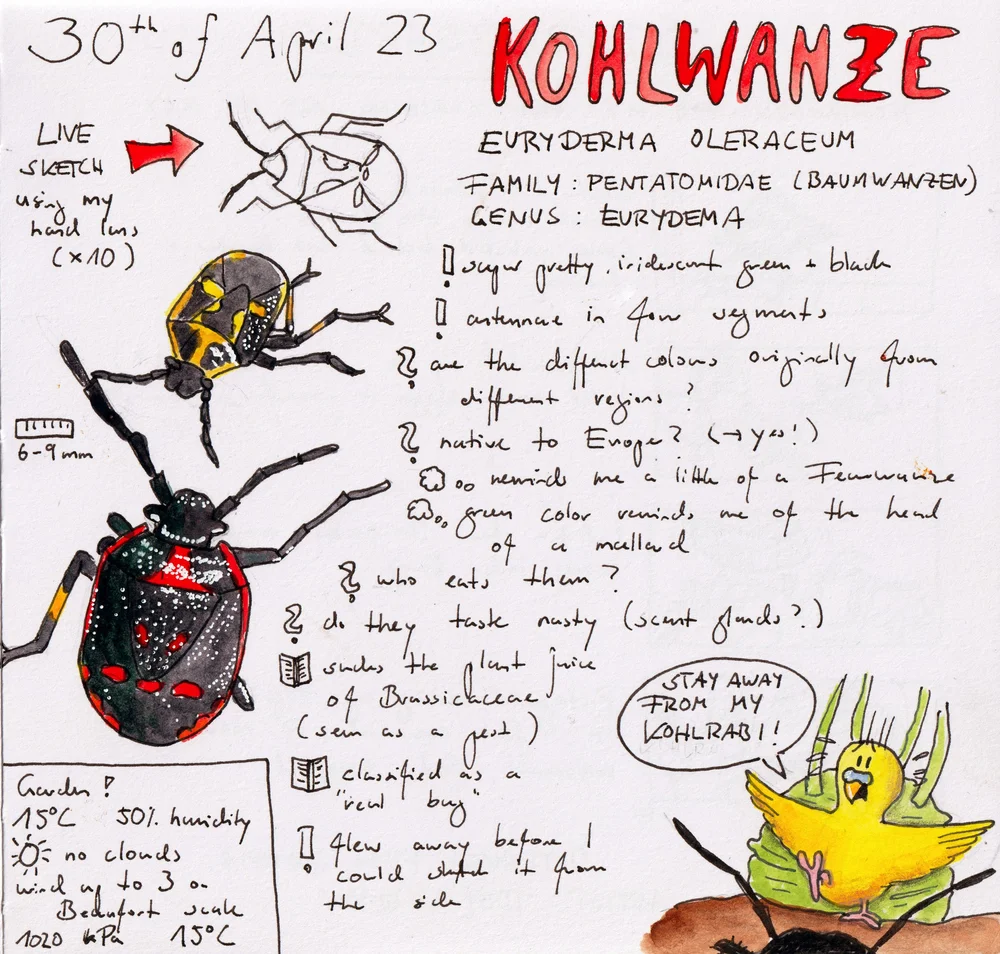 30th of April 23
KOHLWANZE
LIVE
SKETCH
using my
hand lens
(x10)
EURYDERMA OLERACEUM
FAMILY: PENTATOMIDAE (BAUMWANZEN)
GENUS: EURYDEMA
! super pretty, iridescent green + black
! antennae in four segments
? are the different colours originally from
different regions?
? native to Europe? (→ yes!)
reminds me a little of a Feuerwanze
green color reminds me of the head
of a mallard
? who eats them?
? do they taste nasty (scent glands?)
6-9mm
sucks the plant juice
of Brassicaceae
(seen as a pest)
classified as a
"real bug"
! flew away before I
could sketch it from
the side
STAY AWAY
FROM MY
KOHLRABI!
Garden!
15°C 50% humidity
no clouds
wind up to 3 on
Beaufort scale
1020 kPa 15°C